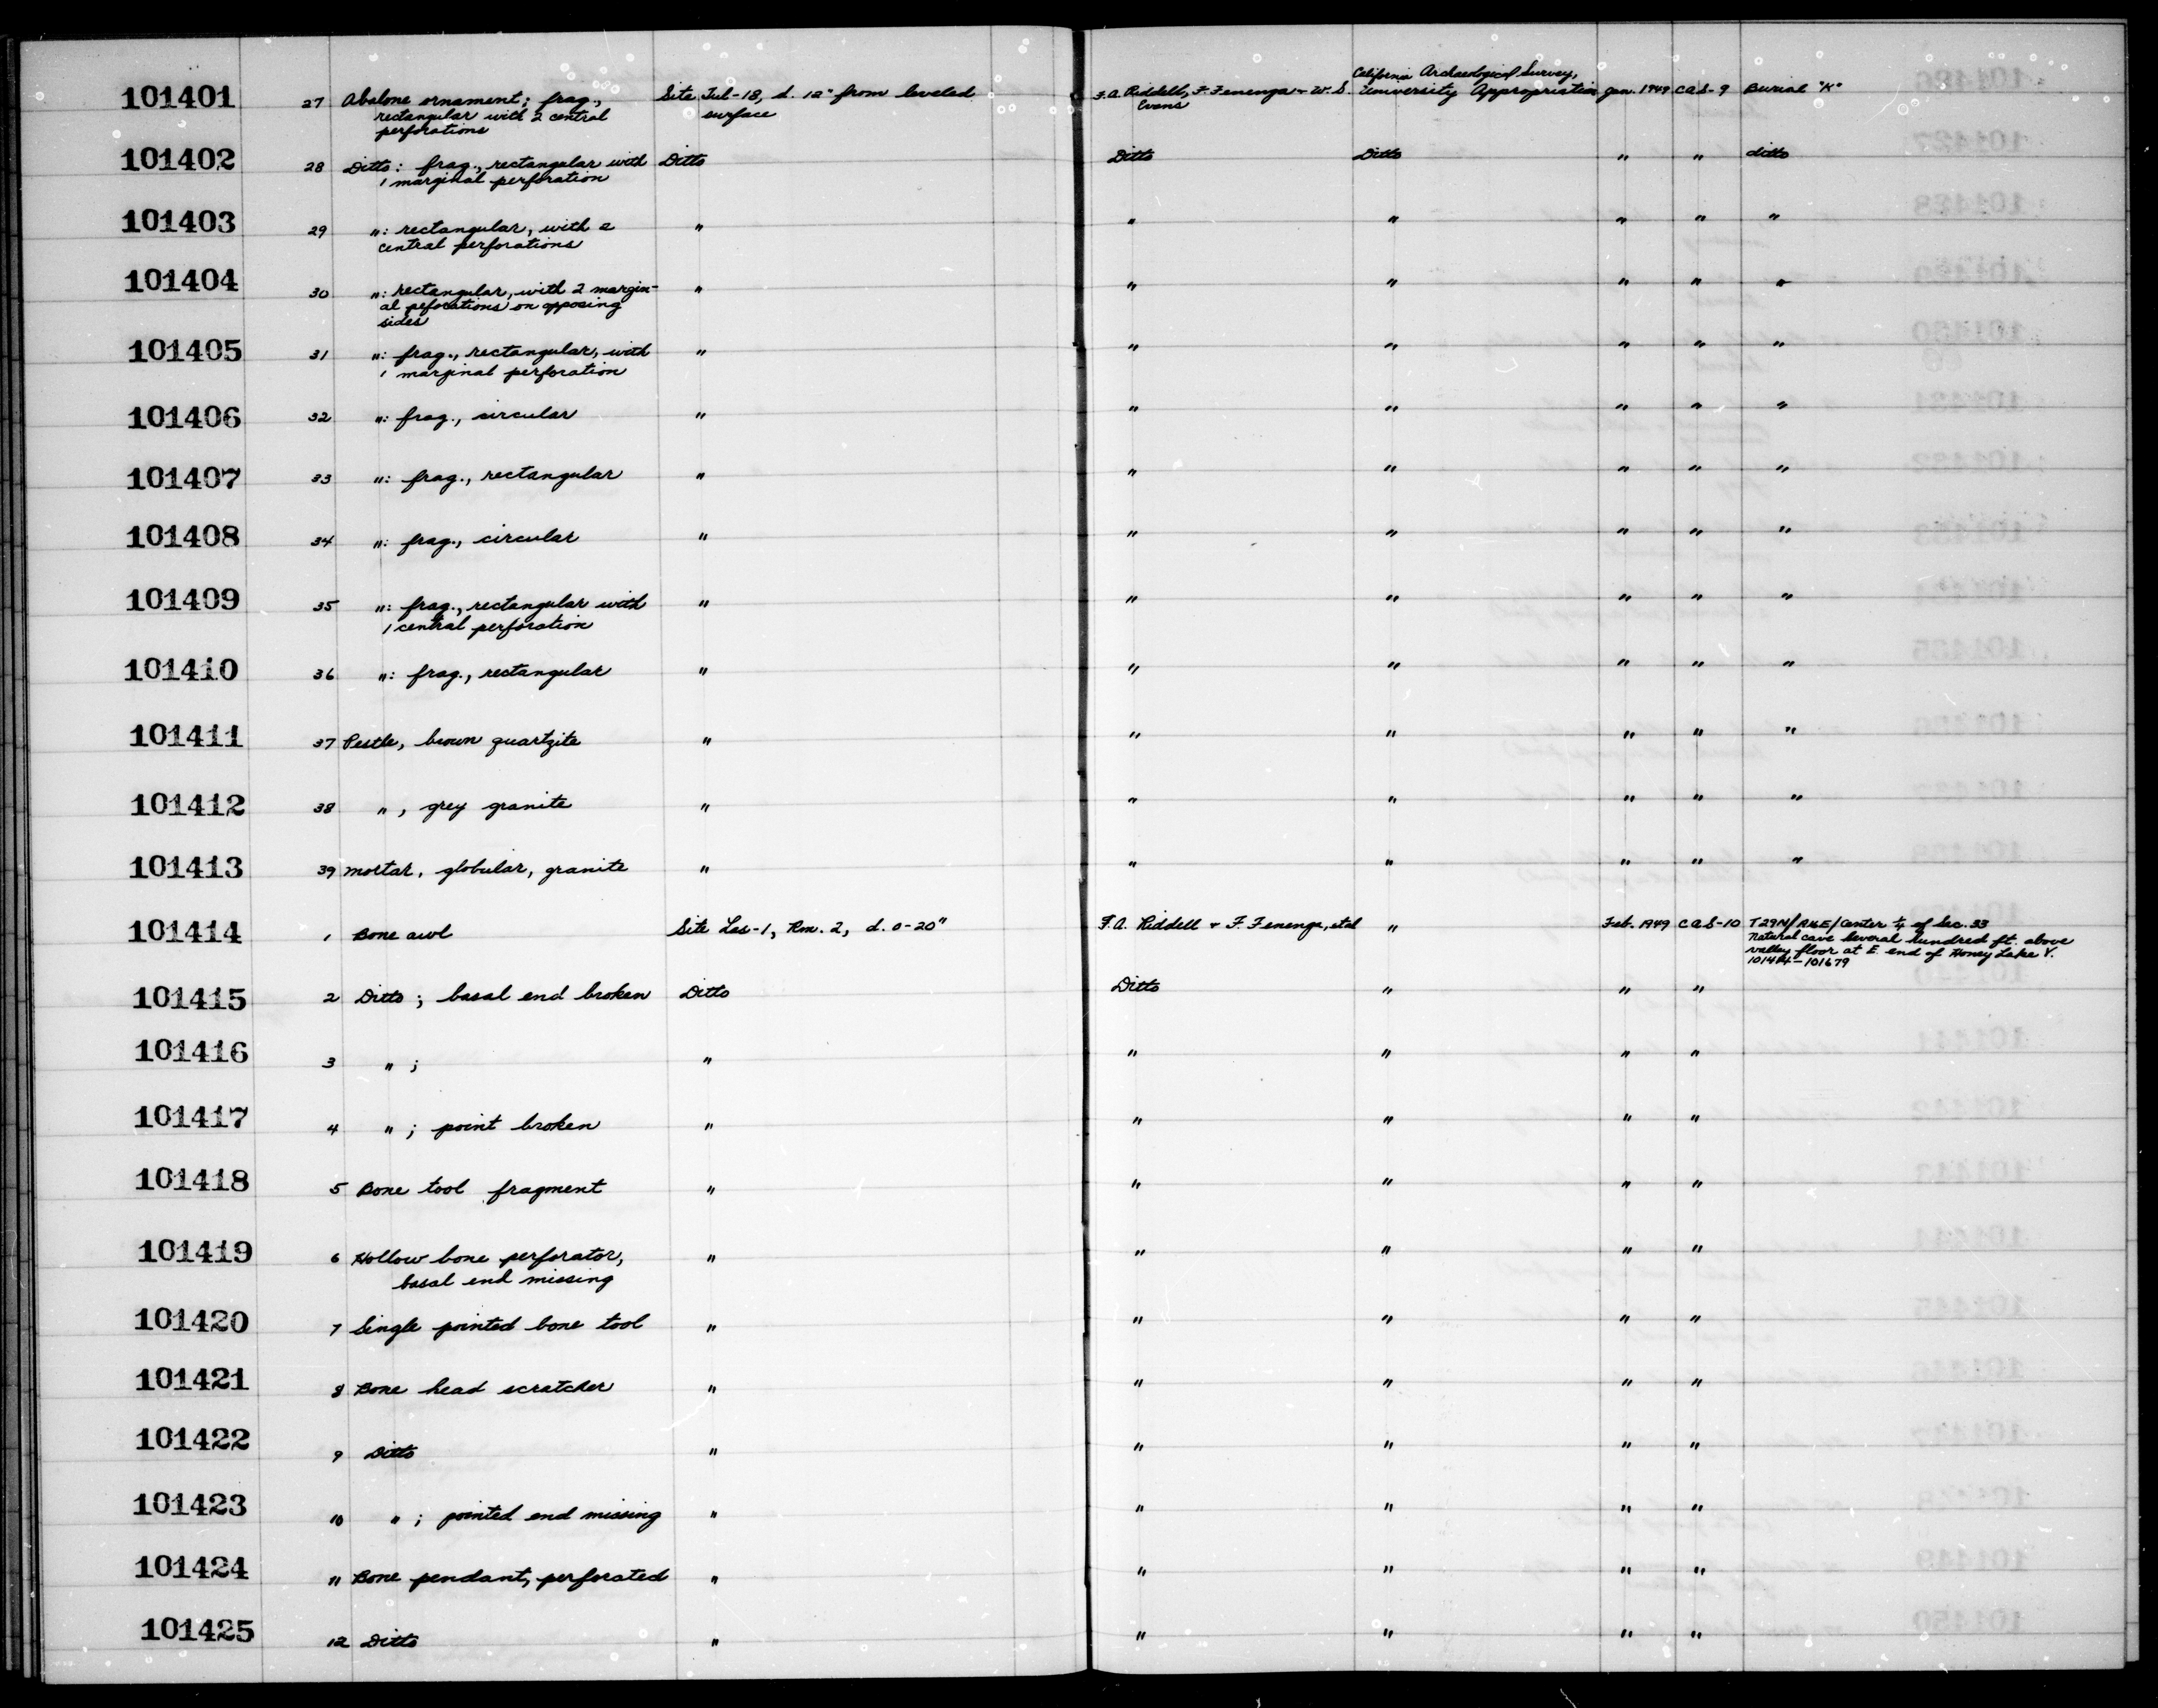 101401 27 Abalone ornament; frag., Site Tul-18, d. 12" from leveled F.A. Riddell, F. Fenenga + W.S. California Archaeological Survey, Jan. 1949 CAS-9 Burial "K"
rectangular with 2 central surface Evans University Appropriation
perforations
101402 28 Ditto: frag., rectangular with Ditto Ditto Ditto " " ditto
1 marginal perforation
101403 29 ": rectangular, with 2 " " " " " "
central perforations
101404 30 ": rectangular, with 2 margin- " " " " " "
al peforations on opposing
sides
101405 31 ": frag., rectangular, with " " " " " "
1 marginal perforation
101406 32 ": frag., circular " " " " " "
101407 33 ": frag., rectangular " " " " " "
101408 34 ": frag., circular " " " " " "
101409 35 ": frag., rectangular with " " " " " "
1 central perforation
101410 36 ": frag., rectangular " " " " " "
101411 37 Pestle, brown quartzite " " " " " "
101412 38 ", grey granite " " " " " "
101413 39 Mortar, globular, granite " " " " " "
101414 1 Bone awl Site Las-1, Rm. 2, d. 0-20" F.A. Riddell + F. Fenenga, et al " Feb. 1949 CAS-10 T29N/ /Center ¼ of Sec. 33
Natural cave several hundred ft. above
valley floor at E. end of Honey Lake V.
101414-101679
101415 2 Ditto; basal end broken Ditto Ditto " " "
101416 3 "; " " " " "
101417 4 "; point broken " " " " "
101418 5 Bone tool fragment " " " " "
101419 6 Hollow bone perforator, " " " " "
basal end missing
101420 7 Single pointed bone tool " " " " "
101421 8 Bone head scratcher " " " " "
101422 9 Ditto " " " " "
101423 10 "; pointed end missing " " " " "
101424 11 Bone pendant, perforated " " " " "
101425 12 Ditto " " " " "